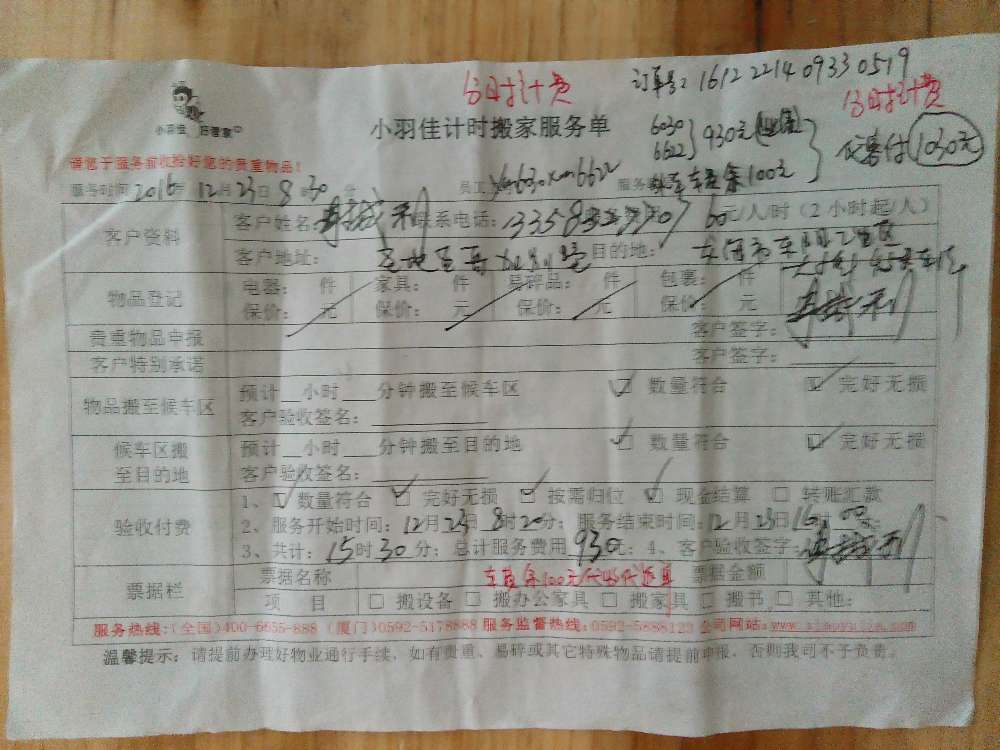 分时计费 订单号：161222140933 0519
分时计费
小羽佳 好管家
小羽佳计时搬家服务单
6030
6622
930元
仅需付 1030元
请您于服务前收拾好您的贵重物品！
服务时间 2016年12月23日8时30分 员工 6030 6622 服务 车费 余100元
客户资料
客户姓名： 利 联系电话： 60元/人/时（2小时起/人）
客户地址： 目的地：
物品登记
电器： 件 家具： 件 易碎品： 件 包裹： 件
保价： 元 保价： 元 保价： 元 保价： 元
贵重物品申报 客户签字：
客户特别承诺 客户签字：
物品搬至候车区
预计__小时___分钟搬至候车区 ☑ 数量符合 ☑ 完好无损
客户验收签名：
候车区搬至目的地
预计__小时___分钟搬至目的地 ☑ 数量符合 ☑ 完好无损
客户验收签名：
验收付费
1、☑ 数量符合 ☑ 完好无损 ☑ 按需归位 ☑ 现金结算 □ 转账汇款
2、服务开始时间：12月23日8时20分；服务结束时间：12月23日16时00分；
3、共计：15时30分；总计服务费用930元；4、客户验收签字：
票据栏
票据名称 车费 余100元 票据金额
项 目 □ 搬设备 □ 搬办公家具 □ 搬家具 □ 搬书 □ 其他：
服务热线：（全国）400-6655-888（厦门）0592-5178888 服务监督热线：0592-5888123 公司网站：
温馨提示：请提前办理好物业通行手续，如有贵重、易碎或其它特殊物品请提前申报，否则我司不予负责。